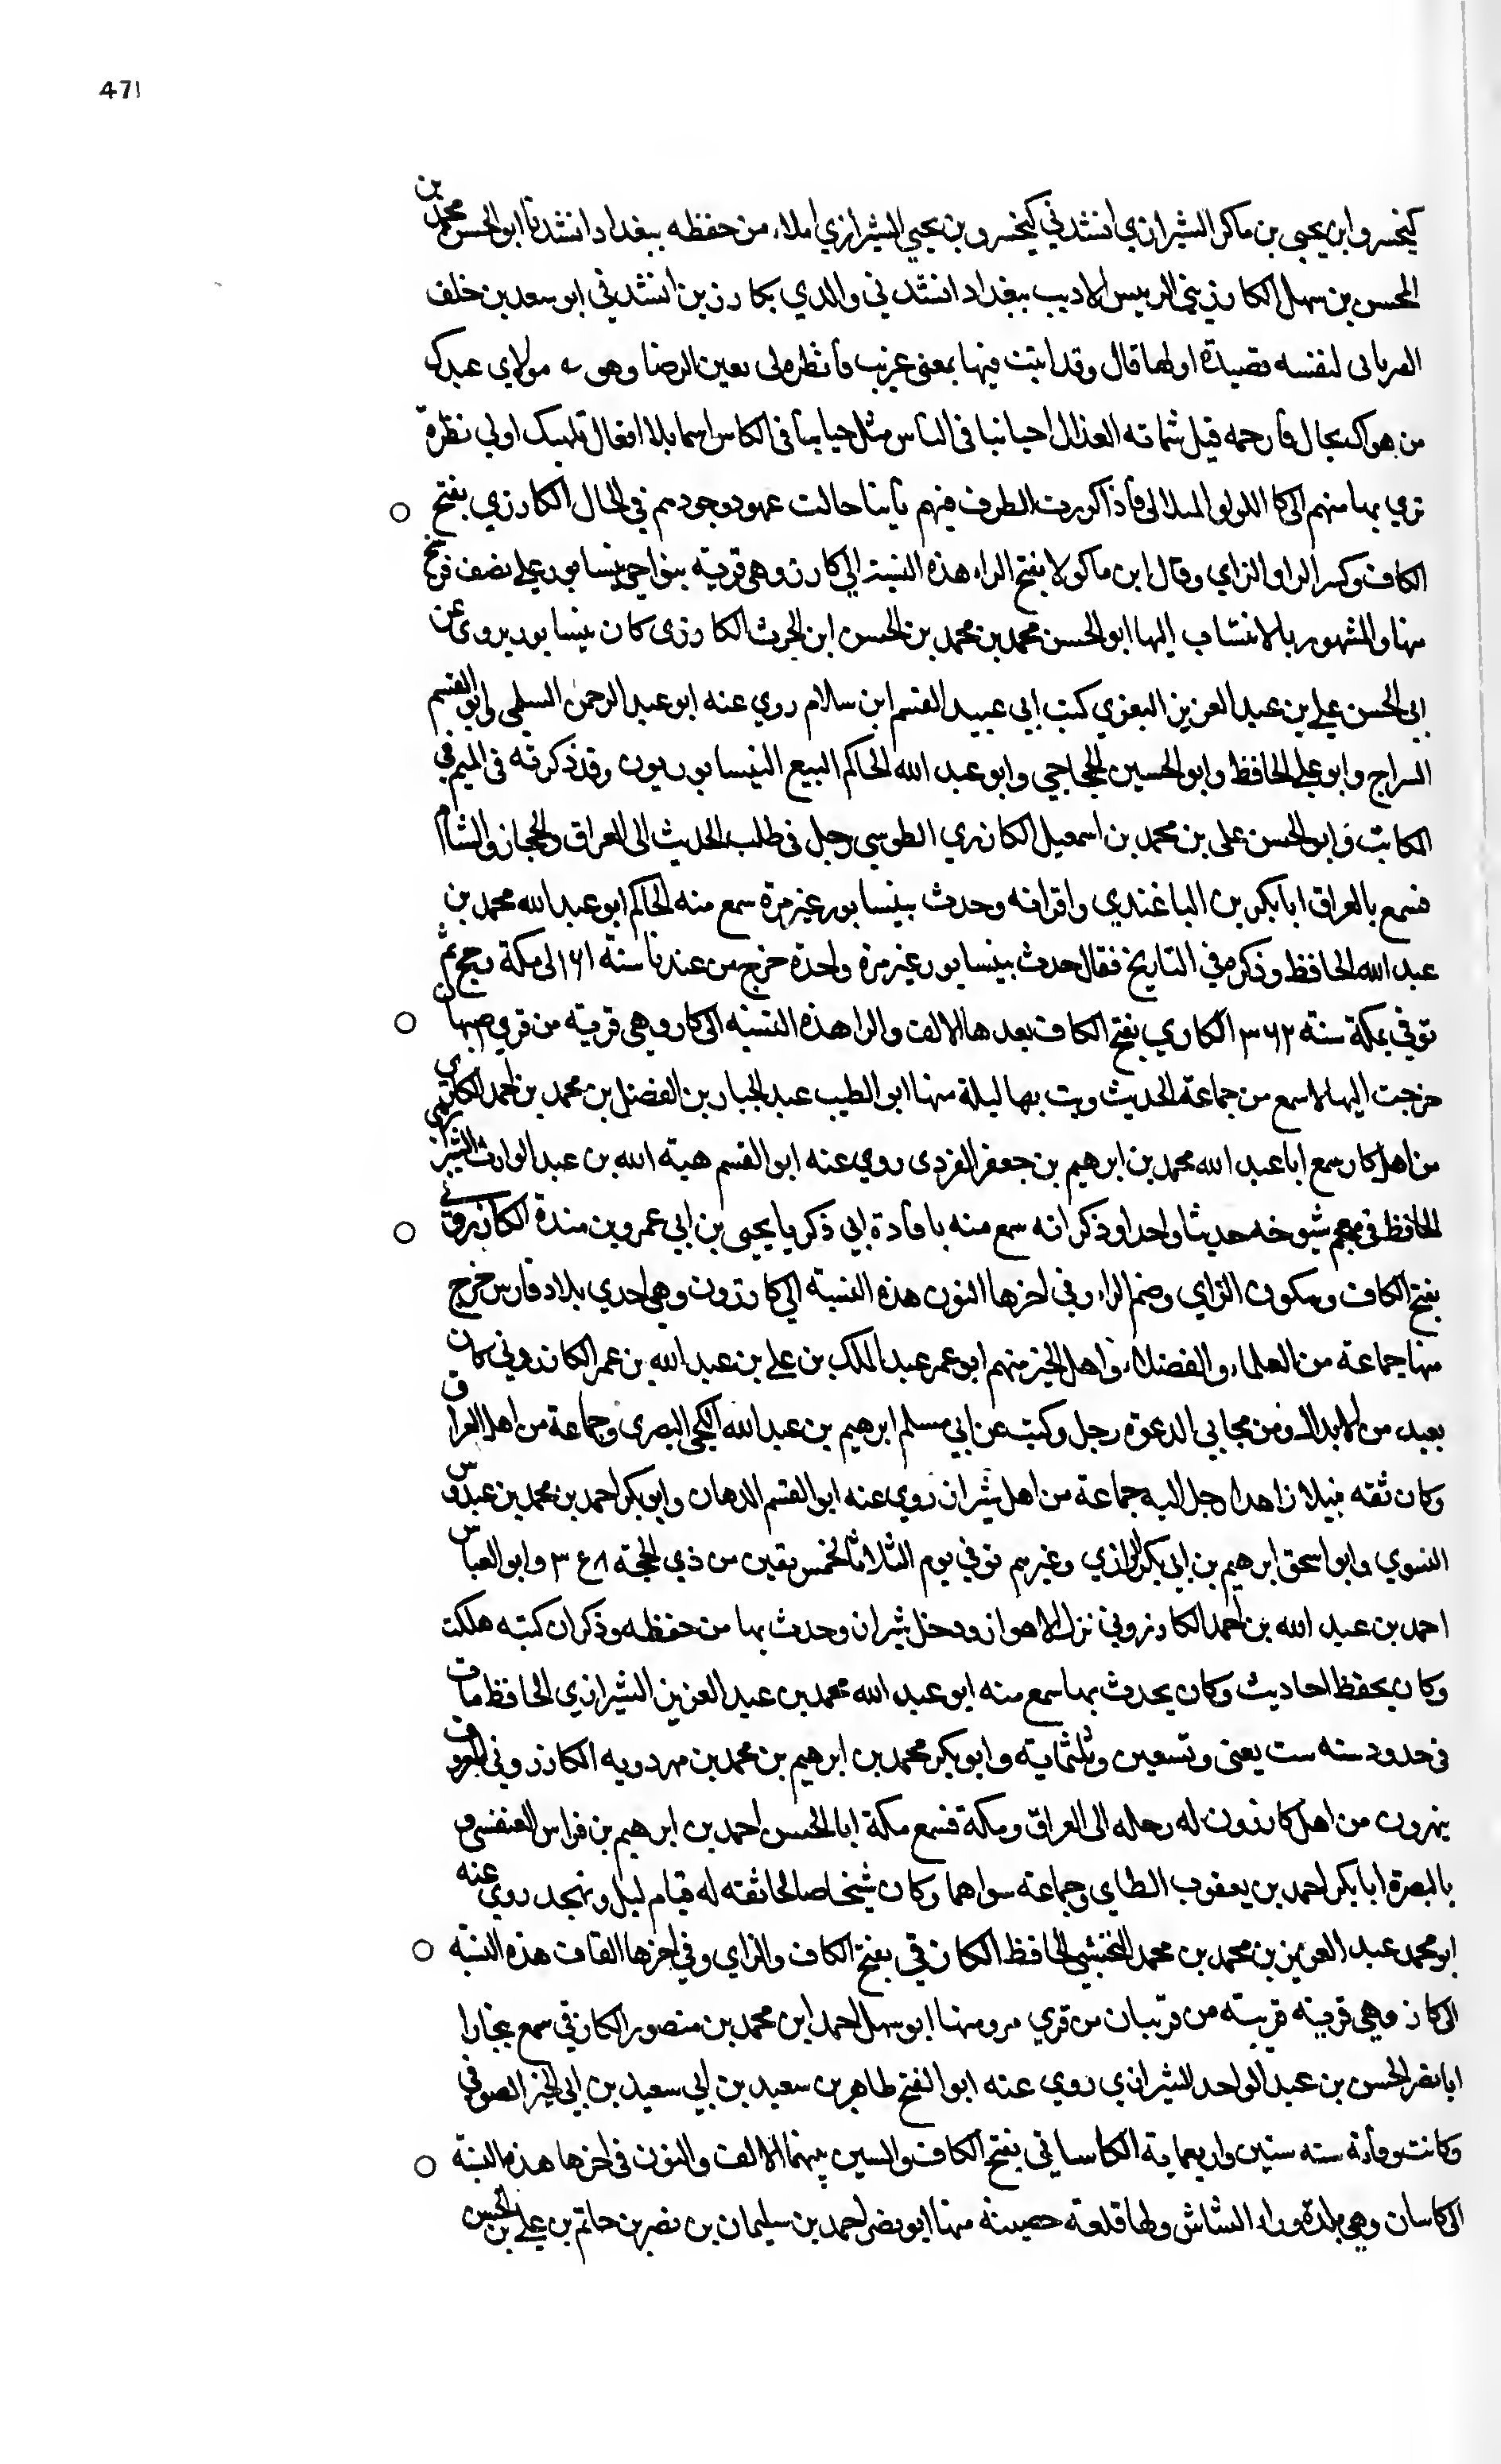 471
كيخسرو ابن يحيى بن ماكر الشيرازي انشدني كيخسرو بن يحيي الشيرازي املاء من حفظه ببغداد انشدنا ابو الحسن محمد بن
المحسن بن سهل الكارزيني الرييس الاديب ببغداد انشدني والدي بكارزين انشدني ابو سعد بن خلف
لنفسه قصيدة اولها قال وقد اتيت فيها بمعنى غريب فانظره لى بعين الرضا وهو مولاي عبدك
من هواك بحال فارحمه قبل شماتة العذال احيانبا في الناس مثل حيابنا في الكاس اولي نظرة
تري بها منهم الى كا اللولو فاذا كررت الطرف فيهم ثانيا حالت عهود وجودهم في الحال الكارزي بفتح
الكاف وكسر الراء والزاي وقال ابن ماكولا بفتح الراء هذه النسبة الي كارز وهي قرية بنواحي نيسابور علي نصف فرسخ
منها والمشهور بالانتساب اليها ابو الحسن محمد بن محمد بن الحسن ابن الحرث الكارزى كان بنيسابور يروى عن
ابي الحسن علي بن عبد العزيز البغوي كتب ابي عبيد القسم ابن سلام روي عنه ابو عبد الرحمن السلمى وابو القسم
السراج وابو علي الحافظ وابو الحسين الحجاجي وابو عبد الله الحاكم البيع النيسابوريون وقد ذكرته في الميم في
المكاتب وابو الحسن على بن محمد بن اسمعيل الكارزي الطوسي رحل في طلب الحديث الى العراق والحجاز والشام
فسمع بالعراق ابا بكر بن الباغندي واقرانه وحدث بنيسابور غير مرة سمع منه الحاكم ابو عبد الله محمد بن
عبد الله الحافظ وذكره في التاريخ فقال حدث بنيسابور غير مرة واحدة خرج من عندنا سنة ١٦١ الى مكة وحج ثم
توفي بمكة سنة ٣٦٢ الكاري بفتح الكاف بعدها الالف والراء هذه النسبة الى كار وهي قرية من قري اصبهان
خرجت اليها لاسمع من جماعة الحديث وبت بها ليلة منها ابو الطيب عبد الجبار بن الفضل بن محمد بن احمد الكاري
من اهل كار سمع ابا عبد الله محمد بن ابرهيم بن جعفر اليزدى روي عنه ابو القسم هبة الله بن عبد الوارث الشيرازي
الحافظ في معجم شيوخه حديثا واحدا وذكر انه سمع منه بافادة ابي ذكريا يحيى بن ابي عمرو بن مندة الكازروني
بفتح الكاف وسكون الزاي وضم الراء وفي اخرها النون هذه النسبة الي كازرون وهي احدي بلاد فارس خرج
منها جماعة من العلماء والفضلاء واهل الخير منهم ابو عمر عبد الملك بن علي بن عبد الله بن عمر الكازروني كان
بعيد من الابدال ومن مجابي الدعوة رحل وكتب عن ابي مسلم ابرهيم بن عبد الله الكجي البصري وجماعة من اهل العراق
وكان ثقه نبيلا زاهدا رحل اليه جماعة من اهل شيراز روي عنه ابو القسم الدهان وابو بكر احمد بن محمد بن عبدوس
النسوي وابو اسحق ابرهيم بن ابي بكر الرازي وغيرهم توفي يوم الثلاثا لخمس بقين من ذي الحجة ٣٤٨ وابو العباس
احمد بن عبد الله بن احمد الكازروني نزل الاهواز ودخل شيراز وحدث بها من حفظه وذكر ان كتبه هلكت
وكان يحفظ احاديث وكان يحدث بها سمع منه ابو عبد الله محمد بن عبد العزيز الشيرازي الحافظ مات
في حدود سنه ست يعنى وتسعين وثلثماية وابو بكر محمد بن ابرهيم بن محمد بن مهردويه الكازروني المعروف
من اهل كازرون له رحله الى العراق ومكة فسمع بمكة ابا الحسن احمد بن ابرهيم بن فراس العبقسي و
بالبصرة ابا بكر احمد بن يعقوب الطاي وجماعة سواهما وكان شيخا صالحا ثقه له قيام ليل وتهجد روي عنه
ابو محمد عبد العزيز بن محمد بن محمد النخشبي الحافظ الكازقي بفتح الكاف والزاي وفي اخرها القاف هذه النسبة
الى كاز وهي قرية قريبة من قري مرو منها ابو سهل احمد ابن محمد بن منصور الكازقي سمع ببخارا
ابا نصر الحسن بن عبد الواحد الشيرازي روي عنه ابو الفتح طاهر بن سعيد بن ابي سعيد بن ابي الخير الصوفي
وكانت وفاته سنه ستين واربعماية الكاساني بفتح الكاف والسين بينهما الالف والنون في اخرها هذه النسبة
الى كاسان وهي بلدة وراء الشاش ولها قلعة حصينة منها ابو نصر احمد بن سليمان بن نصر بن حاتم بن علي بن الحسن